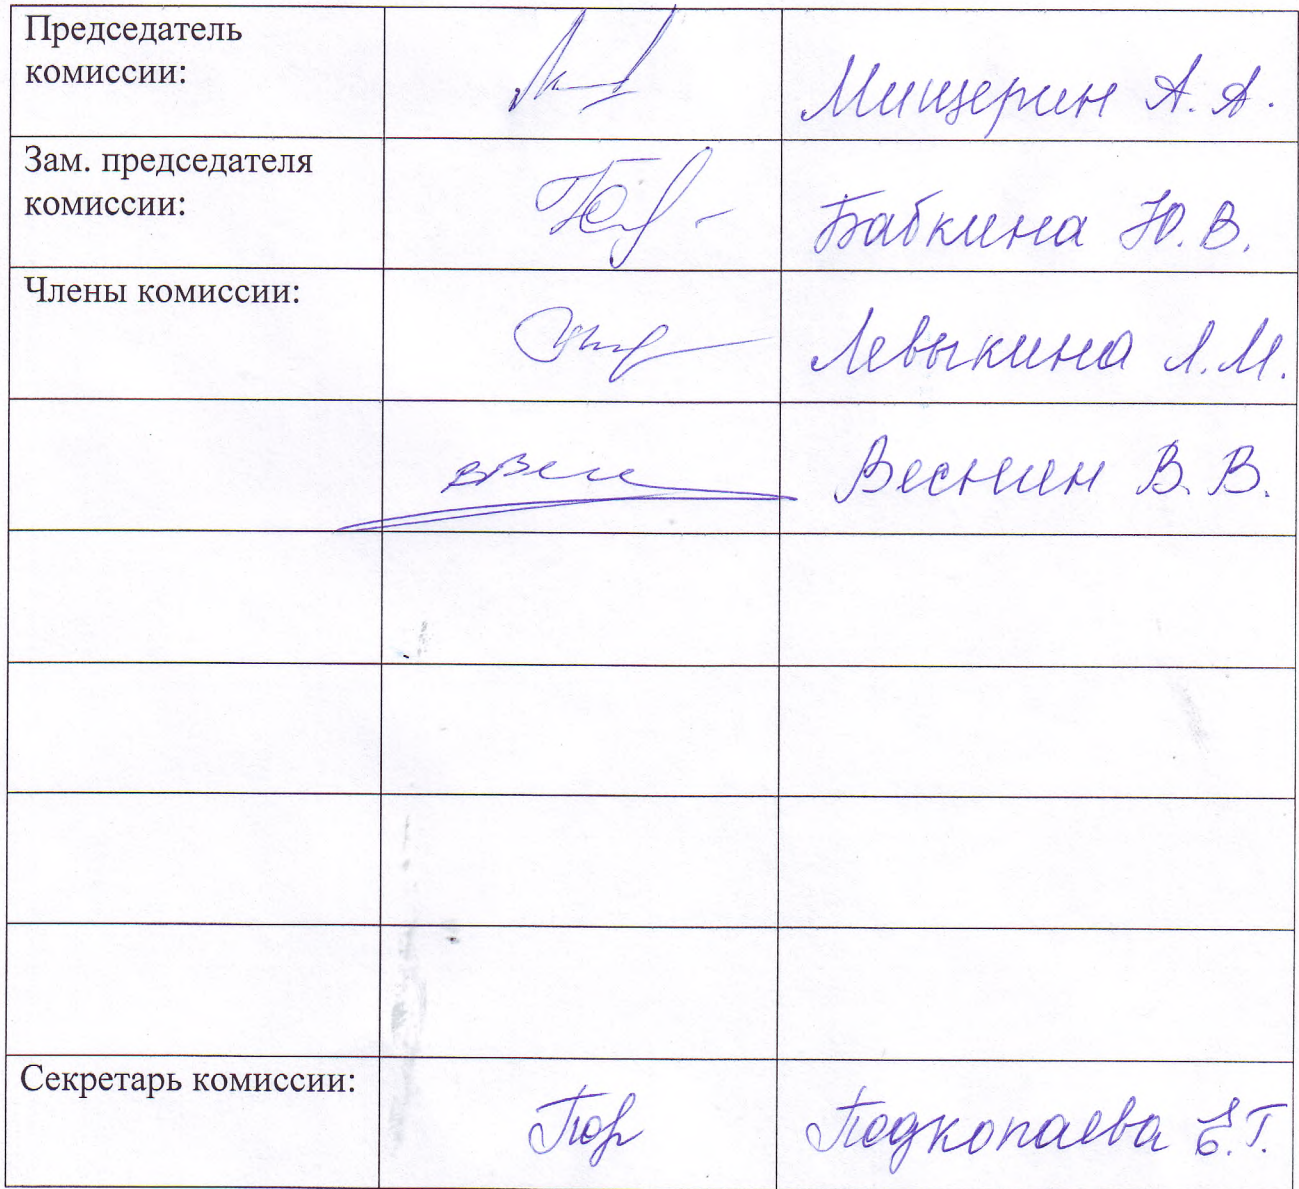 Председатель
комиссии:
Мищерин А. А.
Зам. председателя
комиссии:
Бабкина Ю. В.
Члены комиссии:
Левыкина Л. М.
Веснин В. В.
Секретарь комиссии:
Подкопаева Е. Г.